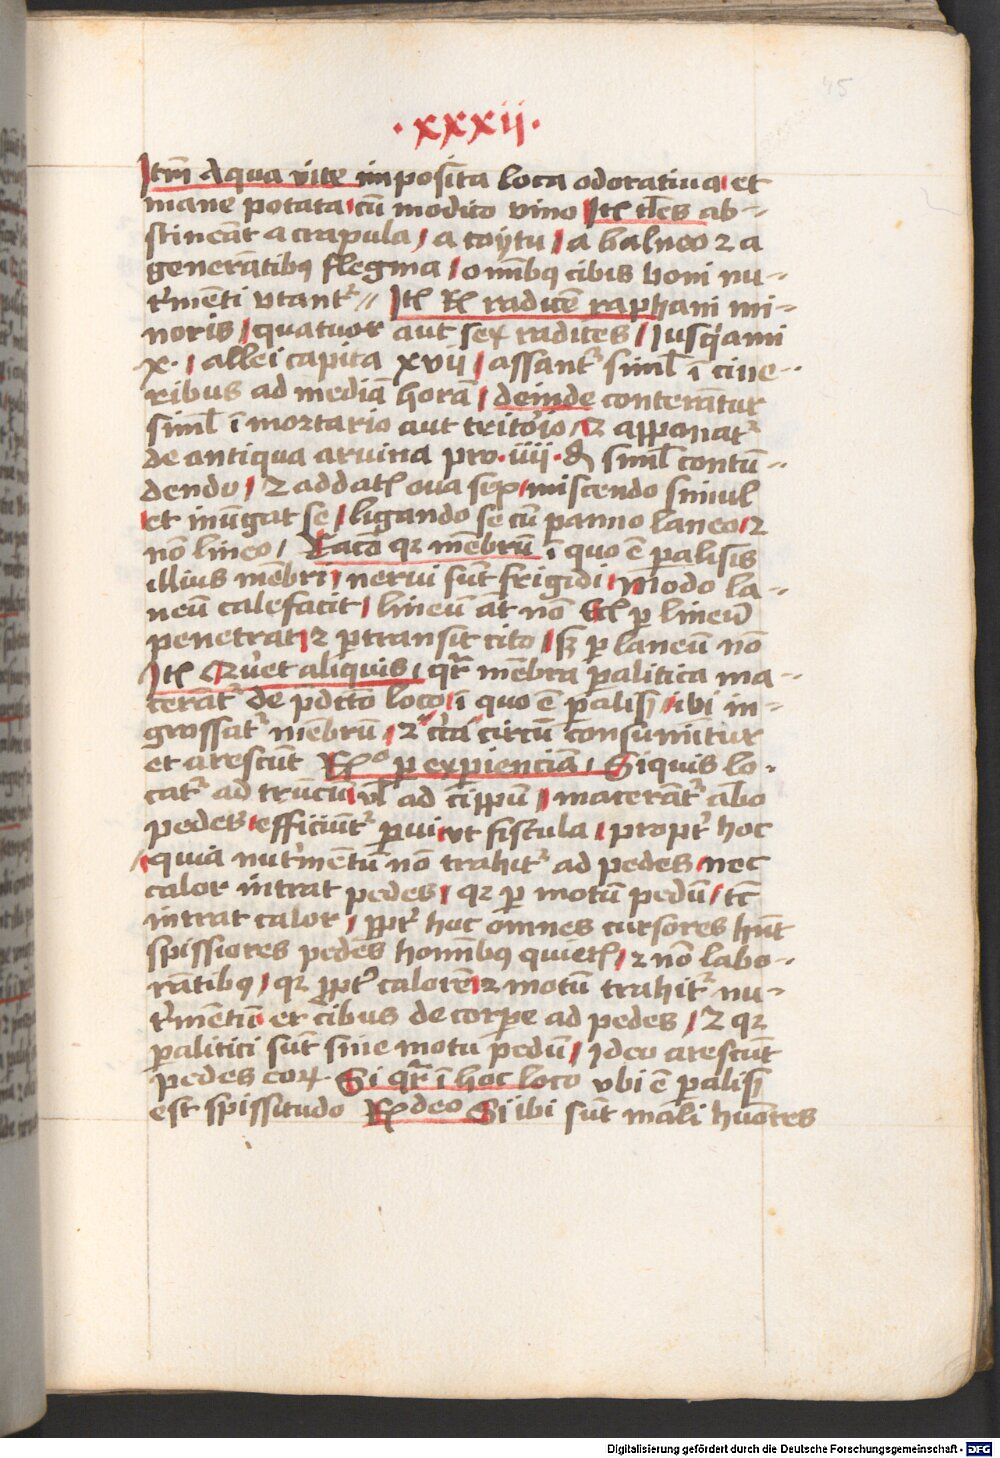 ·xxxij·
Itm̄ Aqua vite imposita loca odoratiua et
mane potata cū modico vino Itē tłes ab-
stineāt a crapula / a coytu / a balneo ⁊ a
generātibꝰ flegma / om̄ibꝰ cibis boni nu-
t'mēti vtant᷑ // Itē Rͥ radicē raphani mi-
noris / quatuor aut sex radices / Jusq'ami
x· / allei capita xvij / assant᷑ siml̄ ī cine-
ribus ad mediā horā / deinde conterātur
siml̄ ī mortario aut tritorio / ⁊ apponat᷑
de antiqua aruina pro · iiij · siml̄ contū-
dendo / ⁊ addat᷑ oua sex miscendo simul
et inūgat se / ligando se cū panno laneo ⁊
nō lineo / Racō qꝛ mēbrū ī quo ē ꝑalisis
illius mēbri / nerui sūt frigidi / Modo la-
neū calefacit / lineū āt nō ꝑ lineū
penetrat ⁊ ꝑtransit cito / sꝫ ꝑ laneū nō
Itē Q'ret aliquis / qr̄ mēbra ꝑalitica ma-
cerāt᷑ de p̄dicto loco ī quo ē ꝑalisis / ibi in-
grossat᷑ mēbrū / ⁊ c'ca circū consumūtur
et arescūt Rͦ ꝑ expienciā / Si quis lo-
cat᷑ ad trūcū vl̄ ad cippū / macerāt᷑ ambo
pedes efficiūt᷑ ꝑui vt fistula / propt᷑ hoc
quia nut'mētū nō trahit᷑ ad pedes nec
calor intrat pedes / qꝛ ꝑ motū pedū / tc̄
intrat calor / ꝓpt᷑ hoc omnes cursores hn̄t
spissiores pedes hom̄ibꝰ quietis / ⁊ nō labo-
rātibꝰ / qꝛ ꝓpt᷑ calorē ⁊ motū trahit᷑ nu-
t'mētū et cibus de corpe ad pedes / ⁊ qꝛ
ꝑalitici sūt sine motu pedū / Ideo arescūt
pedes eoꝝ Si qr̄ ī hoc loco vbi ē ꝑalisis
est spissitudo Rͥdeo Si ibi sūt mali huōres
Digitalisierung gefördert durch die Deutsche Forschungsgemeinschaft - DFG